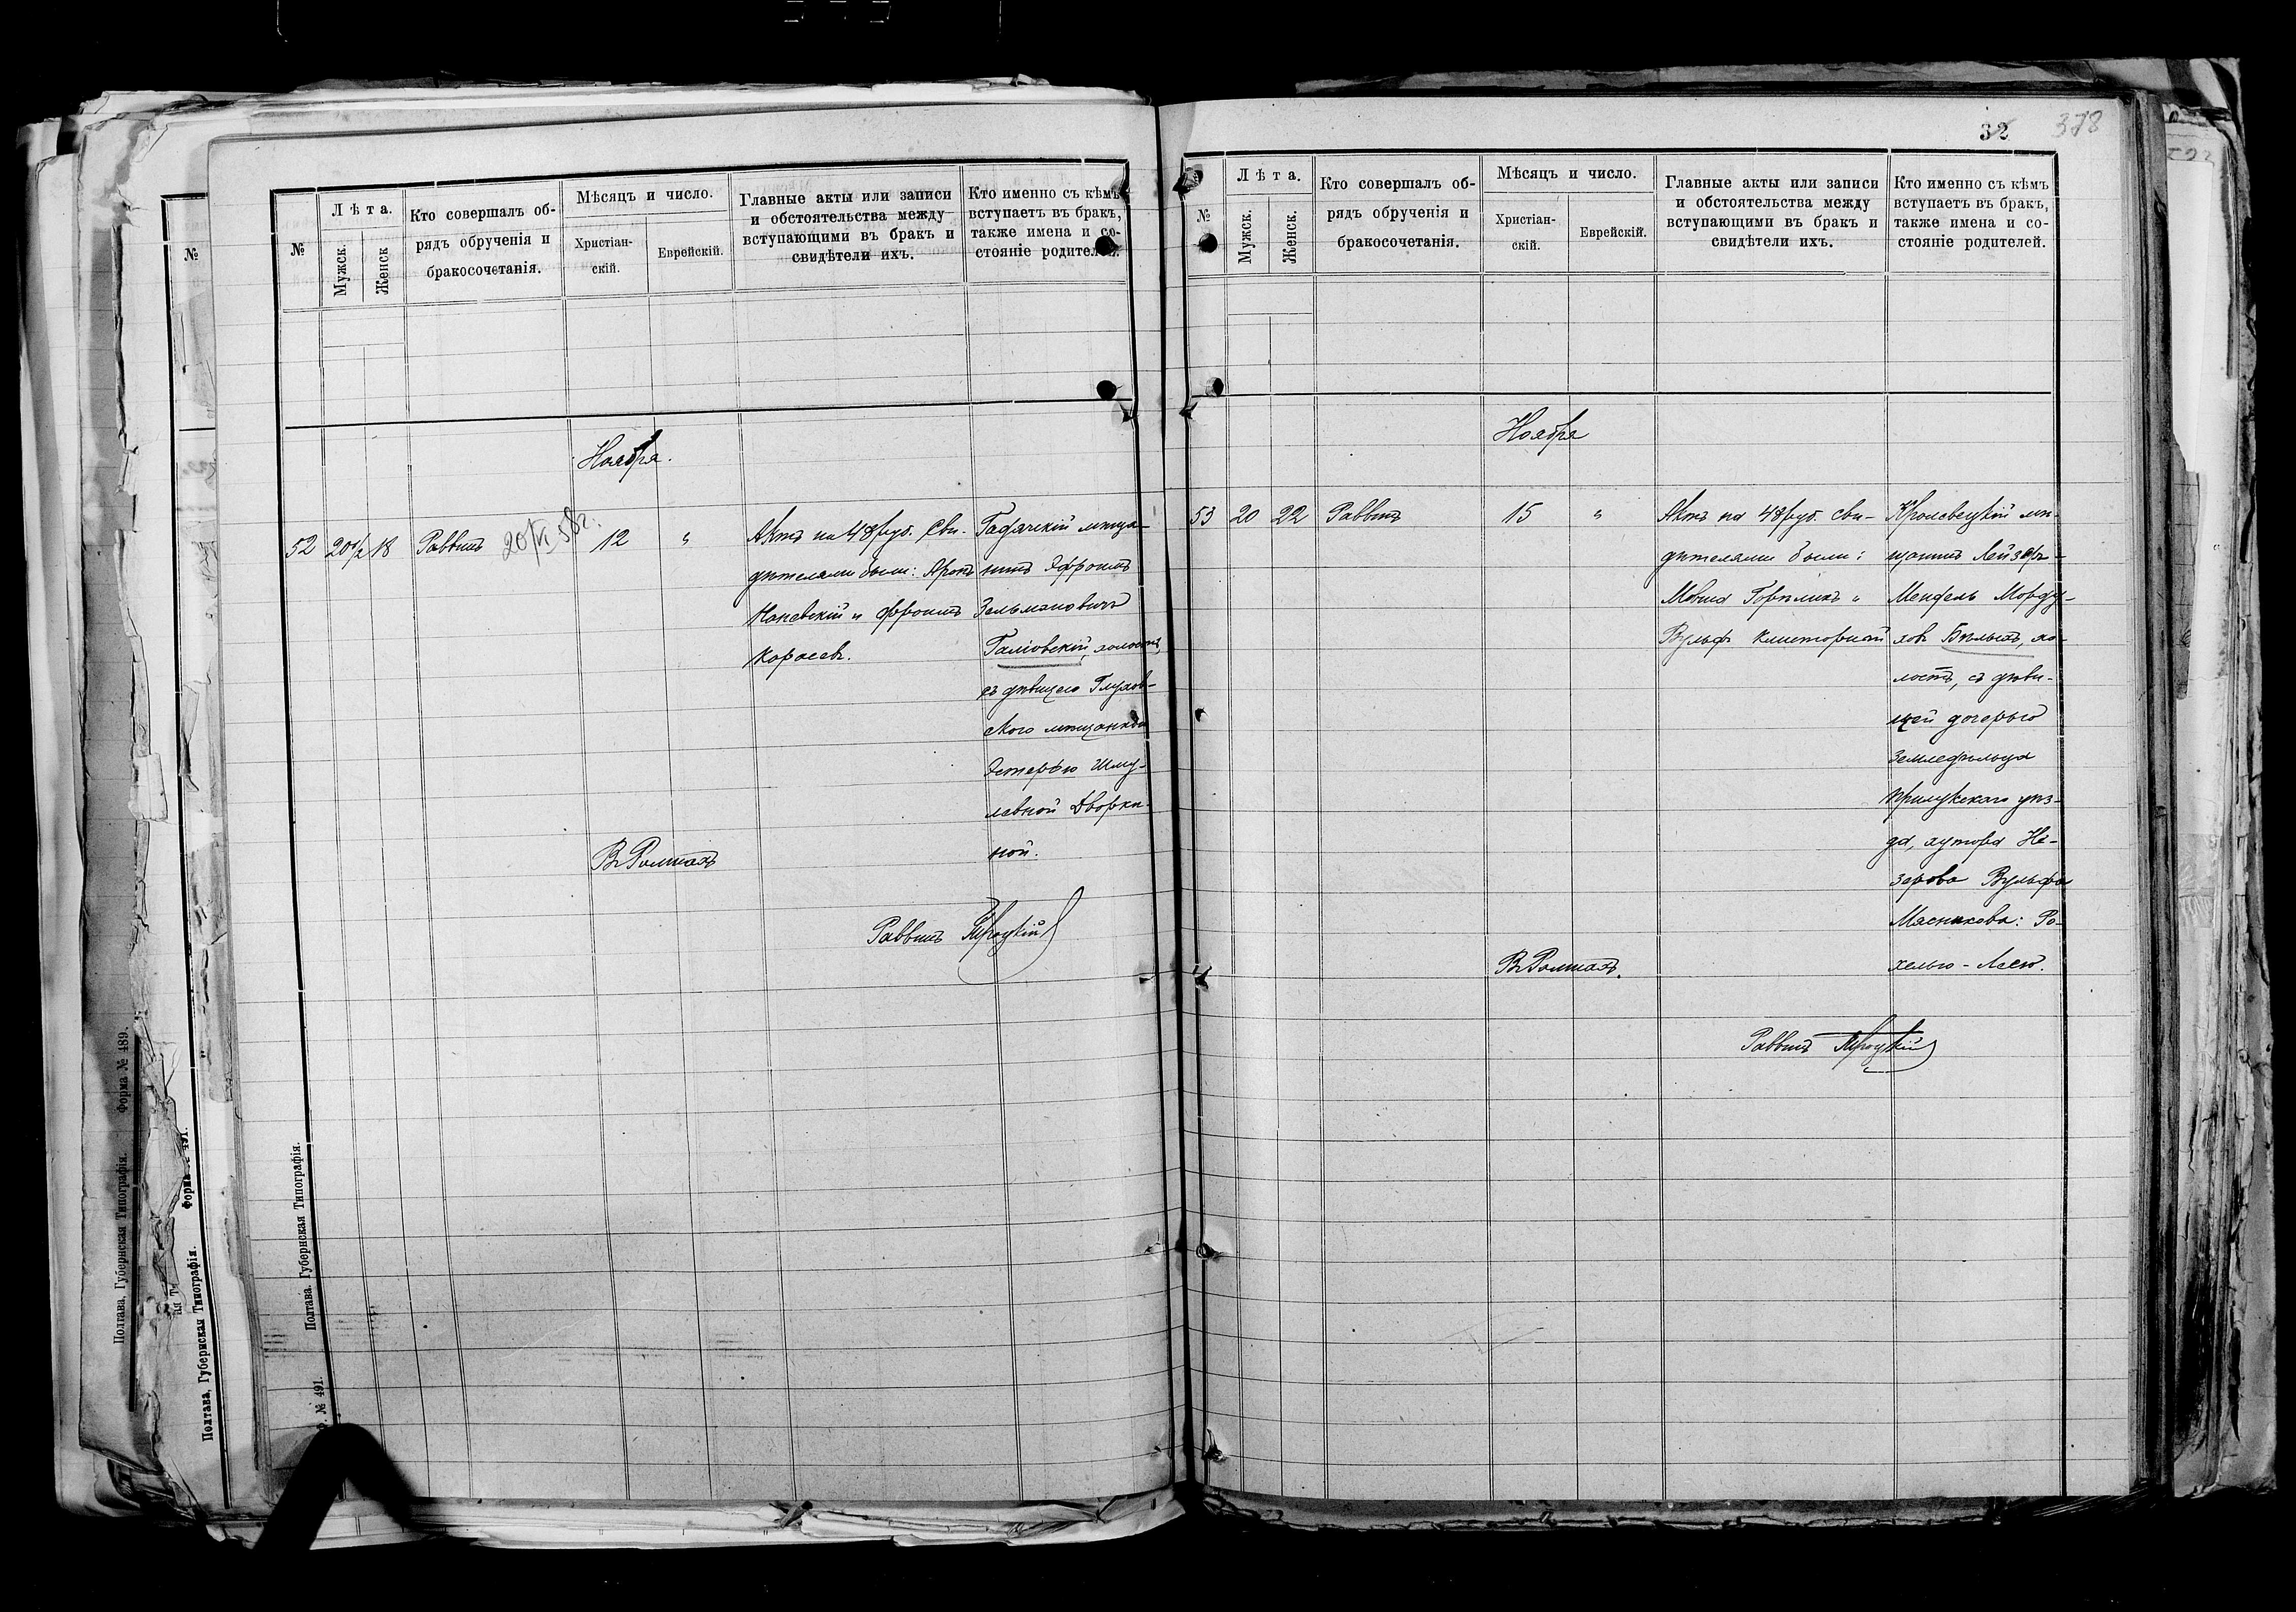 32 378
№
Лѣта.
Мужск.
Женск
Кто совершалъ об-
рядъ обрученія и
бракосочетанія.
Мѣсяцъ и число.
Христіан-
скій.
Еврейскій.
Главные акты или записи
и обстоятельства между
вступающими въ бракъ и
свидѣтели ихъ.
Кто именно съ кѣмъ
вступаетъ въ бракъ,
также имена и со-
стояніе родителей.
Ноября.
52 20½ 18 Раввинъ 20/VI 58г. 12 "
Актъ на 48 руб. Сви-
дѣтелями были: Аронъ
Каневскій и Фроимъ
Карасев.
Гадячскій мѣща-
нинъ Эфроимъ
Зельмановичъ
Галіовскій, холостъ,
съ дѣвицею Глухов-
ского мѣщанкою
Эстерью Шму-
левной Дворки-
ной.
Въ Ромнахъ
Раввинъ
№
Лѣта.
Мужск.
Женск.
Кто совершалъ об-
рядъ обрученія и
бракосочетанія.
Мѣсяцъ и число.
Христіан-
скій.
Еврейскій.
Главные акты или записи
и обстоятельства между
вступающими въ бракъ и
свидѣтели ихъ.
Кто именно съ кѣмъ
вступаетъ въ бракъ,
также имена и со-
стояніе родителей.
Ноября
53 20 22 Раввинъ 15 "
Актъ на 48 руб. Сви-
дѣтелями были:
Мовша Горѣликъ и
Вульфъ
Кролевецкій мѣ-
щанинъ Лейзеръ-
Мендель Морду-
ховъ Бѣлый, хо-
лостъ, съ дѣви-
цей дочерью
Земледѣльца
Прилукскаго уѣз-
да, хутора Не-
зерова Вульфа
Мясникова: Ра-
хелью-Леею.
Въ Ромнахъ.
Раввинъ
Полтава, Губернская Типографія. Форма № 489.
Полтава, Губернская Типографія. Форма 491.
Полтава. Губернская Типографія.
№ 491.